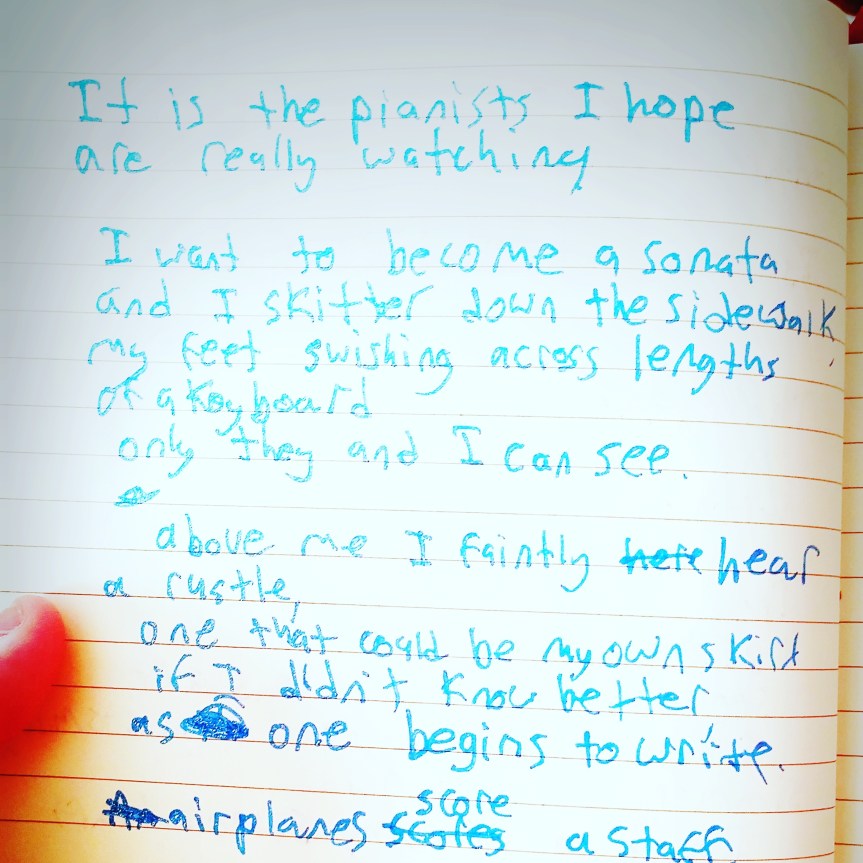 It is the pianists I hope
are really watching
I want to become a sonata
and I skitter down the sidewalk,
my feet swishing across lengths
of a keyboard
only they and I can see.
above me I faintly here hear
a rustle,
one that could be my own skirt
if I didn't know better
as one begins to write.
airplanes scores score a staff